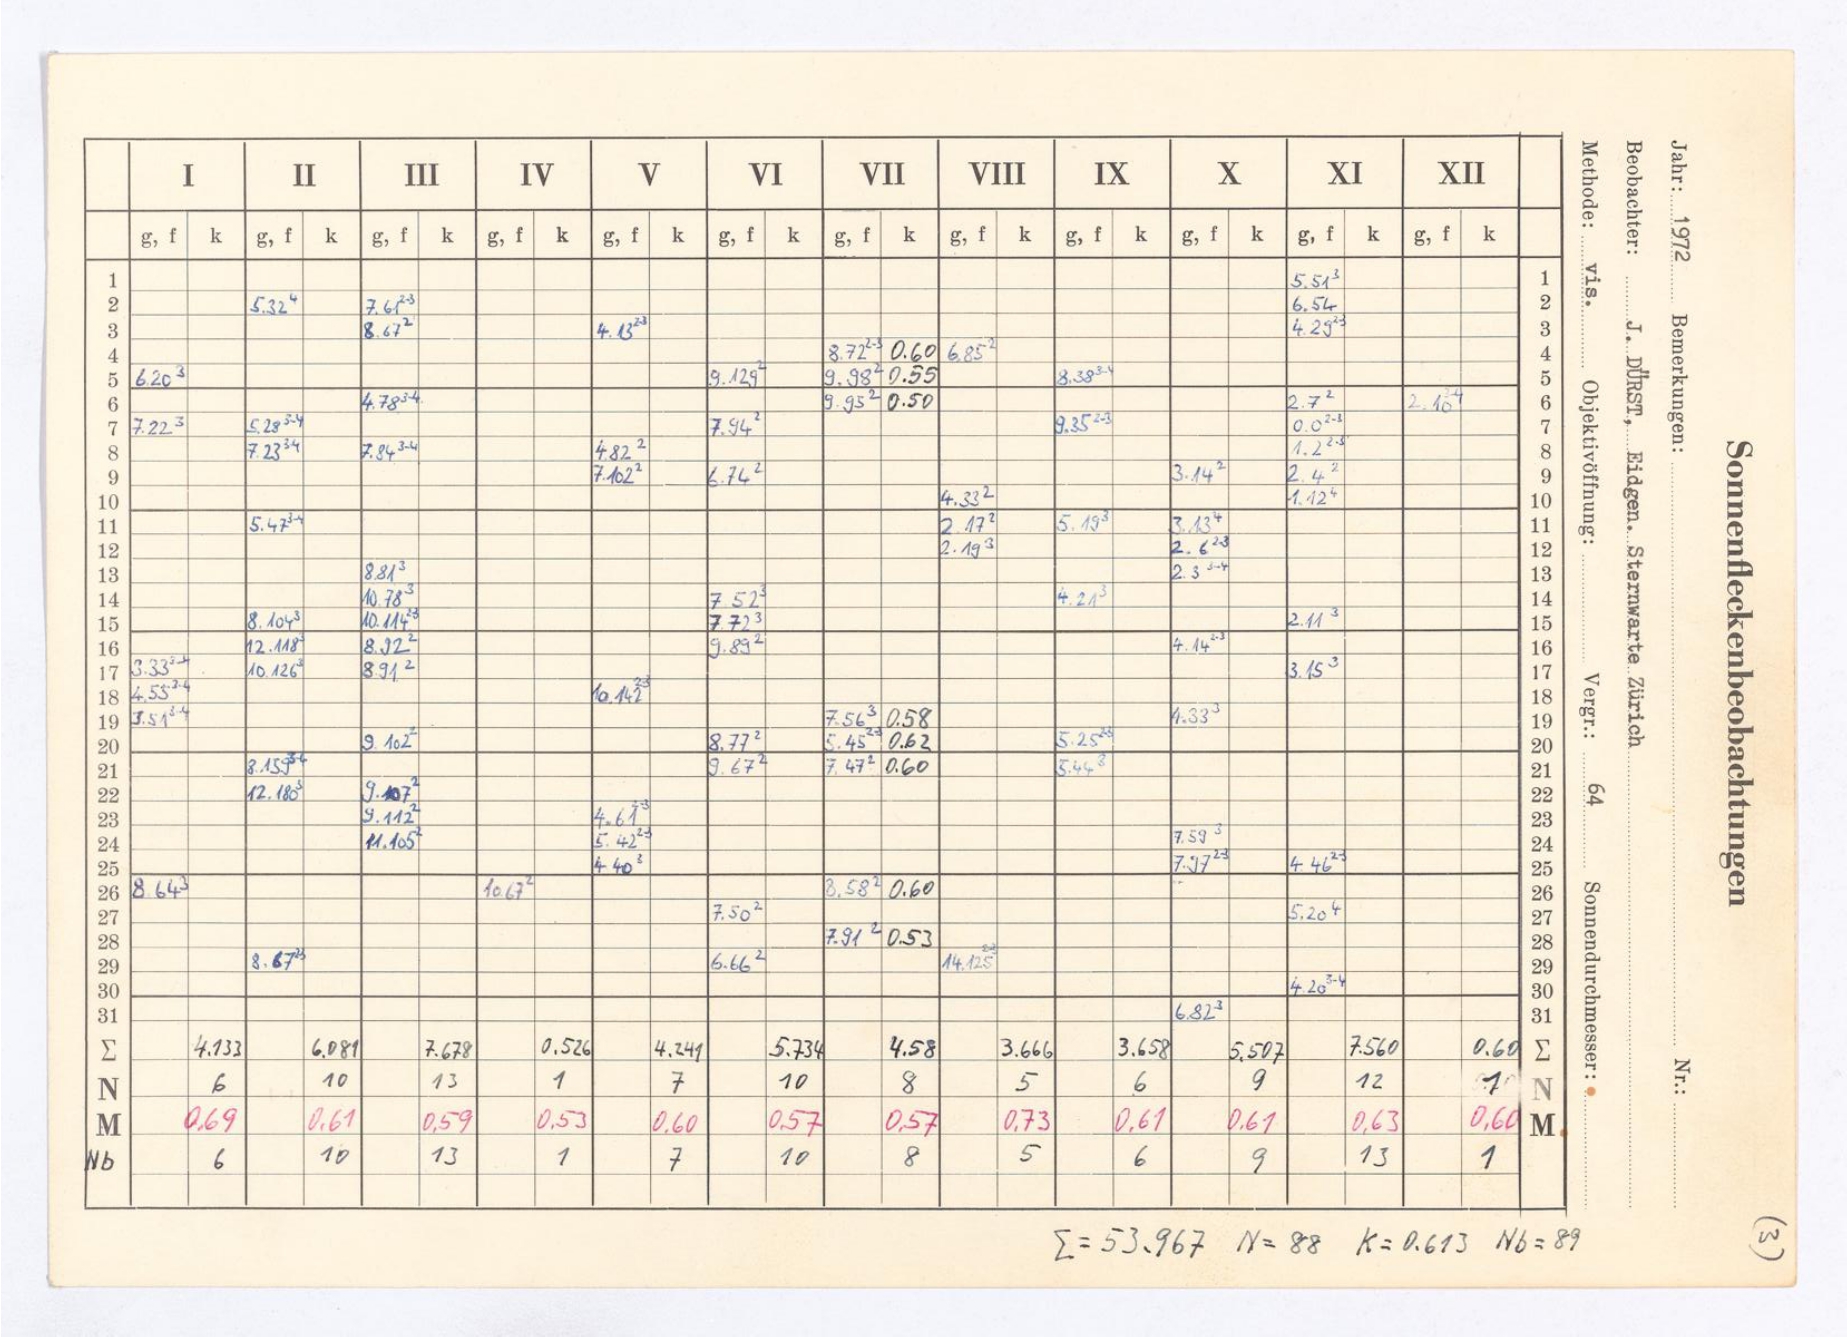 Sonnenfleckenbeobachtungen
(3)
Jahr: 1972 Bemerkungen: Nr.:
Beobachter: J. DÜRST, Eidgen. Sternwarte Zürich
Methode: vis. Objektivöffnung: Vergr.: 64 Sonnendurchmesser:
I II III IV V VI VII VIII IX X XI XII
g, f k g, f k g, f k g, f k g, f k g, f k g, f k g, f k g, f k g, f k g, f k g, f k
1 5.51³ 1
2 5.32⁴ 7.61²⁻³ 6.54 2
3 8.67² 4.13²⁻³ 4.29²⁻³ 3
4 8.72²⁻³ 0.60 6.85² 4
5 6.20³ 9.129² 9.98² 0.55 8.38³⁻⁴ 5
6 4.78³⁻⁴ 9.95² 0.50 2.7² 2.10³⁻⁴ 6
7 7.22³ 5.28³⁻⁴ 7.94² 9.35²⁻³ 0.0²⁻³ 7
8 7.23³⁻⁴ 7.84³⁻⁴ 4.82² 1.2²⁻³ 8
9 7.102² 6.74² 3.14² 2.4² 9
10 4.33² 1.12⁴ 10
11 5.47³⁻⁴ 2.17² 5.19³ 3.13⁴ 11
12 2.19³ 2.6²⁻³ 12
13 8.81³ 2.3³⁻⁴ 13
14 10.78³ 7.52³ 4.21³ 14
15 8.104³ 10.114²⁻³ 7.72³ 2.11³ 15
16 12.118³ 8.92² 9.89² 4.14²⁻³ 16
17 3.33³⁻⁴ 10.126³ 8.91² 3.15³ 17
18 4.55³⁻⁴ 10.142²⁻³ 18
19 3.51³⁻⁴ 7.56³ 0.58 4.33³ 19
20 9.102² 8.77² 5.45²⁻³ 0.62 5.25²⁻³ 20
21 8.159³⁻⁴ 9.67² 7.47² 0.60 5.44³ 21
22 12.180³ 9.107² 22
23 9.112² 4.61²⁻³ 23
24 11.105² 5.42²⁻³ 7.59³ 24
25 4.40³ 7.97²⁻³ 4.46²⁻³ 25
26 8.64³ 10.67² 8.58² 0.60 26
27 7.50² 5.20⁴ 27
28 7.91² 0.53 28
29 8.67²⁻³ 6.66² 14.125²⁻³ 29
30 4.20³⁻⁴ 30
31 6.82³ 31
Σ 4.133 6.081 7.678 0.526 4.241 5.734 4.58 3.666 3.658 5.507 7.560 0.60 Σ
N 6 10 13 1 7 10 8 5 6 9 12 1 N
M 0,69 0,61 0,59 0,53 0,60 0,57 0,57 0,73 0,61 0.61 0,63 0,60 M
Nb 6 10 13 1 7 10 8 5 6 9 13 1
Σ = 53.967 N = 88 K = 0.613 Nb = 89